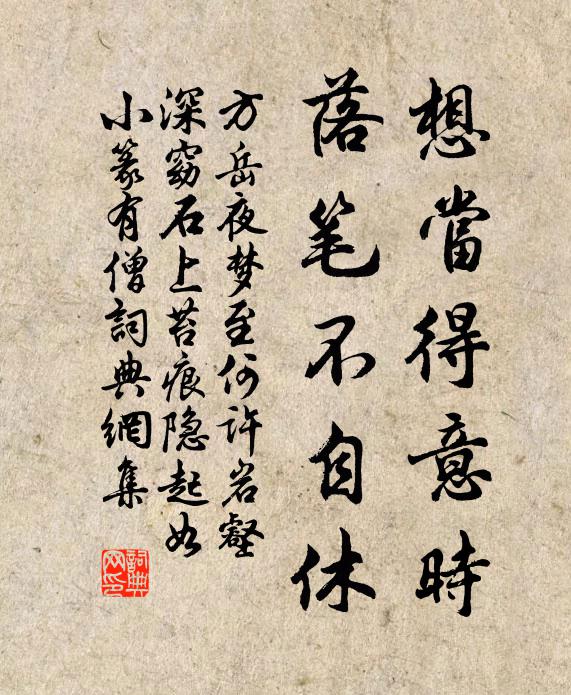 想當得意時
落笔不自休
方岳夜梦至何许岩壑
深窈石上苔痕隐起如
小篆有僧詞典網集
詞典
网印